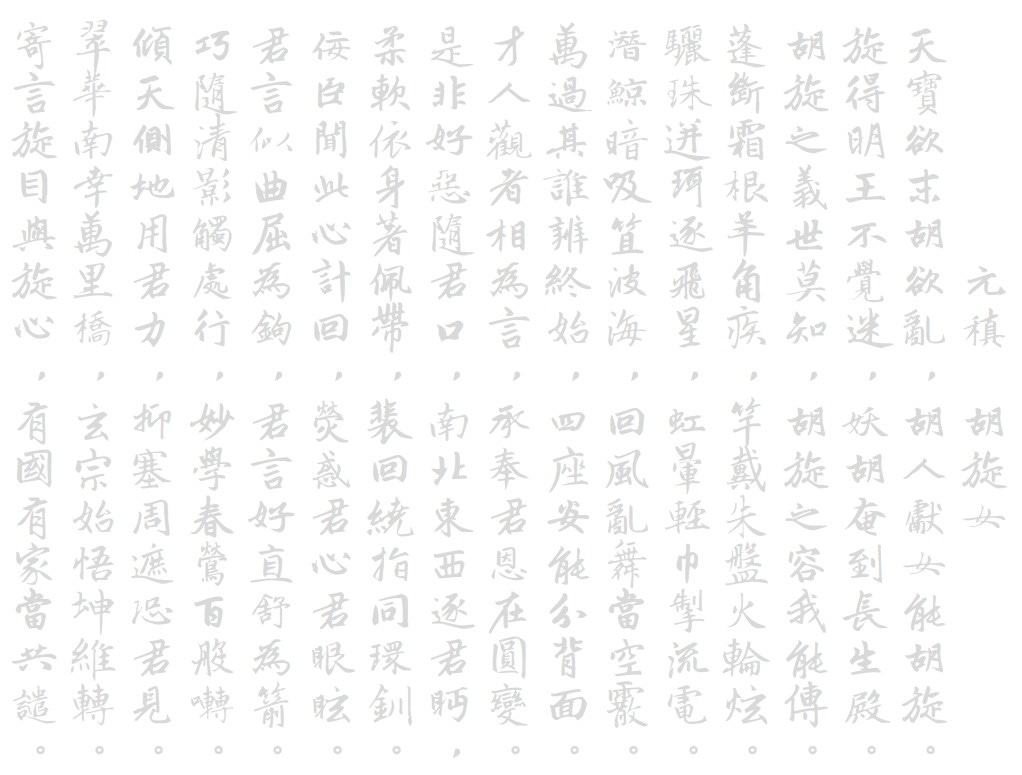 元稹 胡旋女
天寶欲末胡欲亂，胡人獻女能胡旋。
旋得明王不覺迷，妖胡奄到長生殿。
胡旋之義世莫知，胡旋之容我能傳。
蓬斷霜根羊角疾，竿戴朱盤火輪炫。
驪珠迸珥逐飛星，虹暈輕巾掣流電。
潛鯨暗吸笪波海，回風亂舞當空霰。
萬過其誰辨終始，四座安能分背面。
才人觀者相為言，承奉君恩在圓變。
是非好惡隨君口，南北東西逐君眄，
柔軟依身著佩帶，裴回繞指同環釧。
佞臣聞此心計回，熒惑君心君眼眩。
君言似曲屈為鉤，君言好直舒為箭。
巧隨清影觸處行，妙學春鶯百般囀。
傾天側地用君力，抑塞周遮恐君見。
翠華南幸萬里橋，玄宗始悟坤維轉。
寄言旋目與旋心，有國有家當共譴。